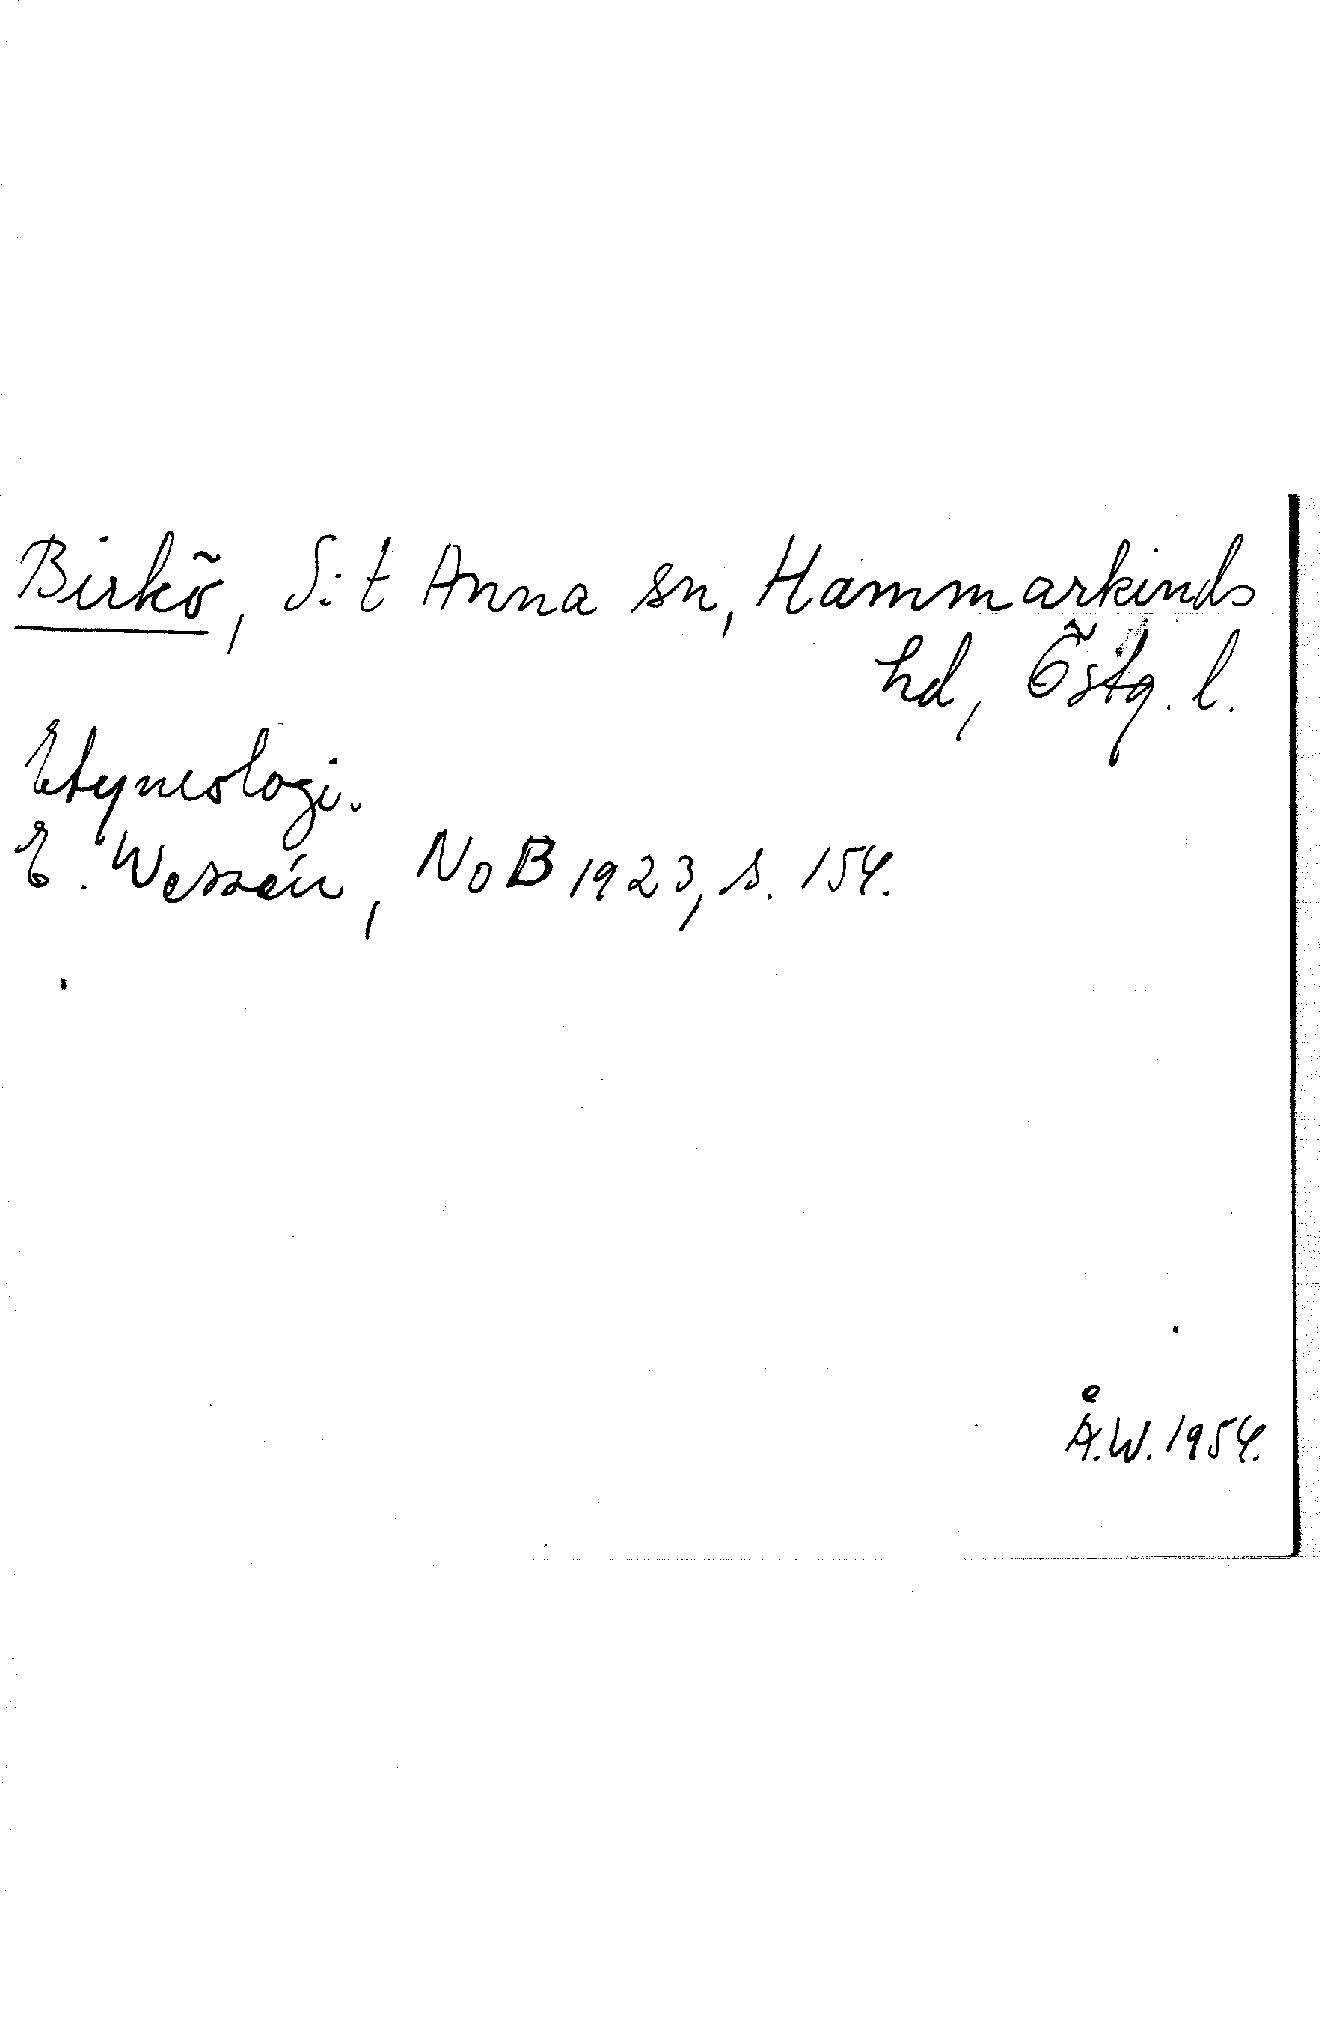 Birkö, S:t Anna sn, Hammarkinds
hd, Östg. l.
Etymologi.
E. Wessén, NoB 1923, s. 154.
Å.W. 1954.